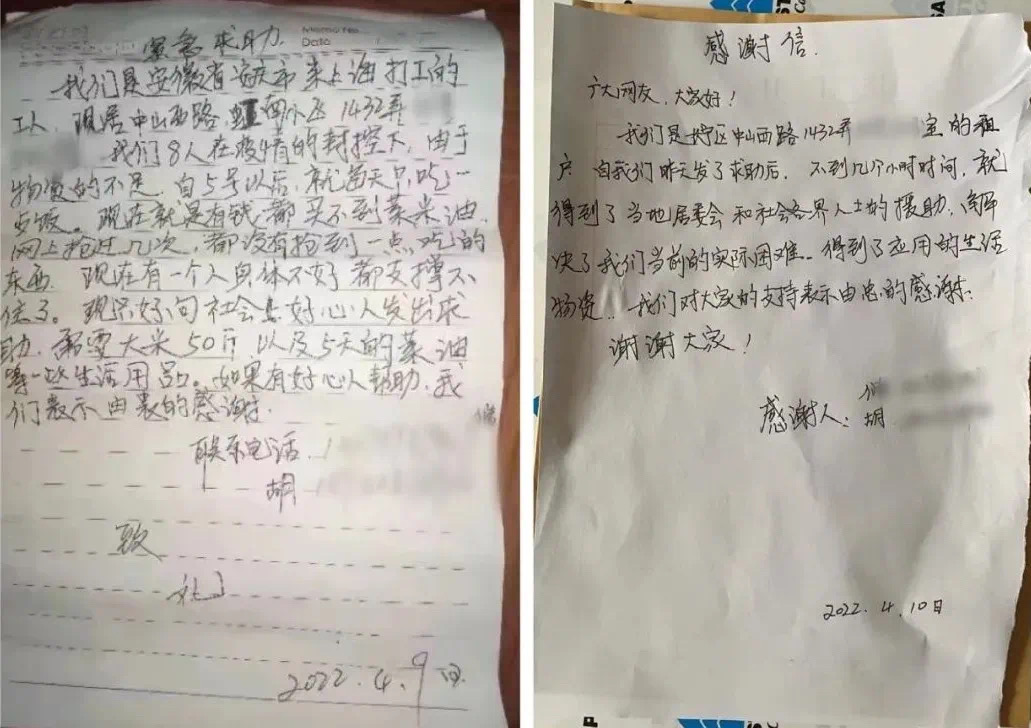 Memo No.
Date
紧急求助
我们是安徽省安庆市来上海打工的
工人,现居中山西路 虹南小区1432弄
我们8人在疫情的封控下,由于
物资的不足,自5号以后,就每天只吃一
顿饭。现在就是有钱都买不到菜米油,
网上抢过几次,都没有抢到一点吃的
东西.现在有一个人身体不好都支撑不
住了。现只好向社会上好心人发出求
助,需要大米50斤,以及5天的菜油
等一些生活用品。如果有好心人帮助,我
们表示由衷的感谢.
联系电话.
胡
致
礼
2022.4.9日.
感谢信.
广大网友,大家好!
我们是长宁区中山西路1432弄 室的租
户.自我们昨天发了求助后,不到几个小时时间,就
得到了当地居委会和社会各界人士的援助,解
决了我们当前的实际困难..得到了应用的生活
物资,我们对大家的支持表示由忠的感谢.
谢谢大家!
感谢人:胡
2022.4.10日